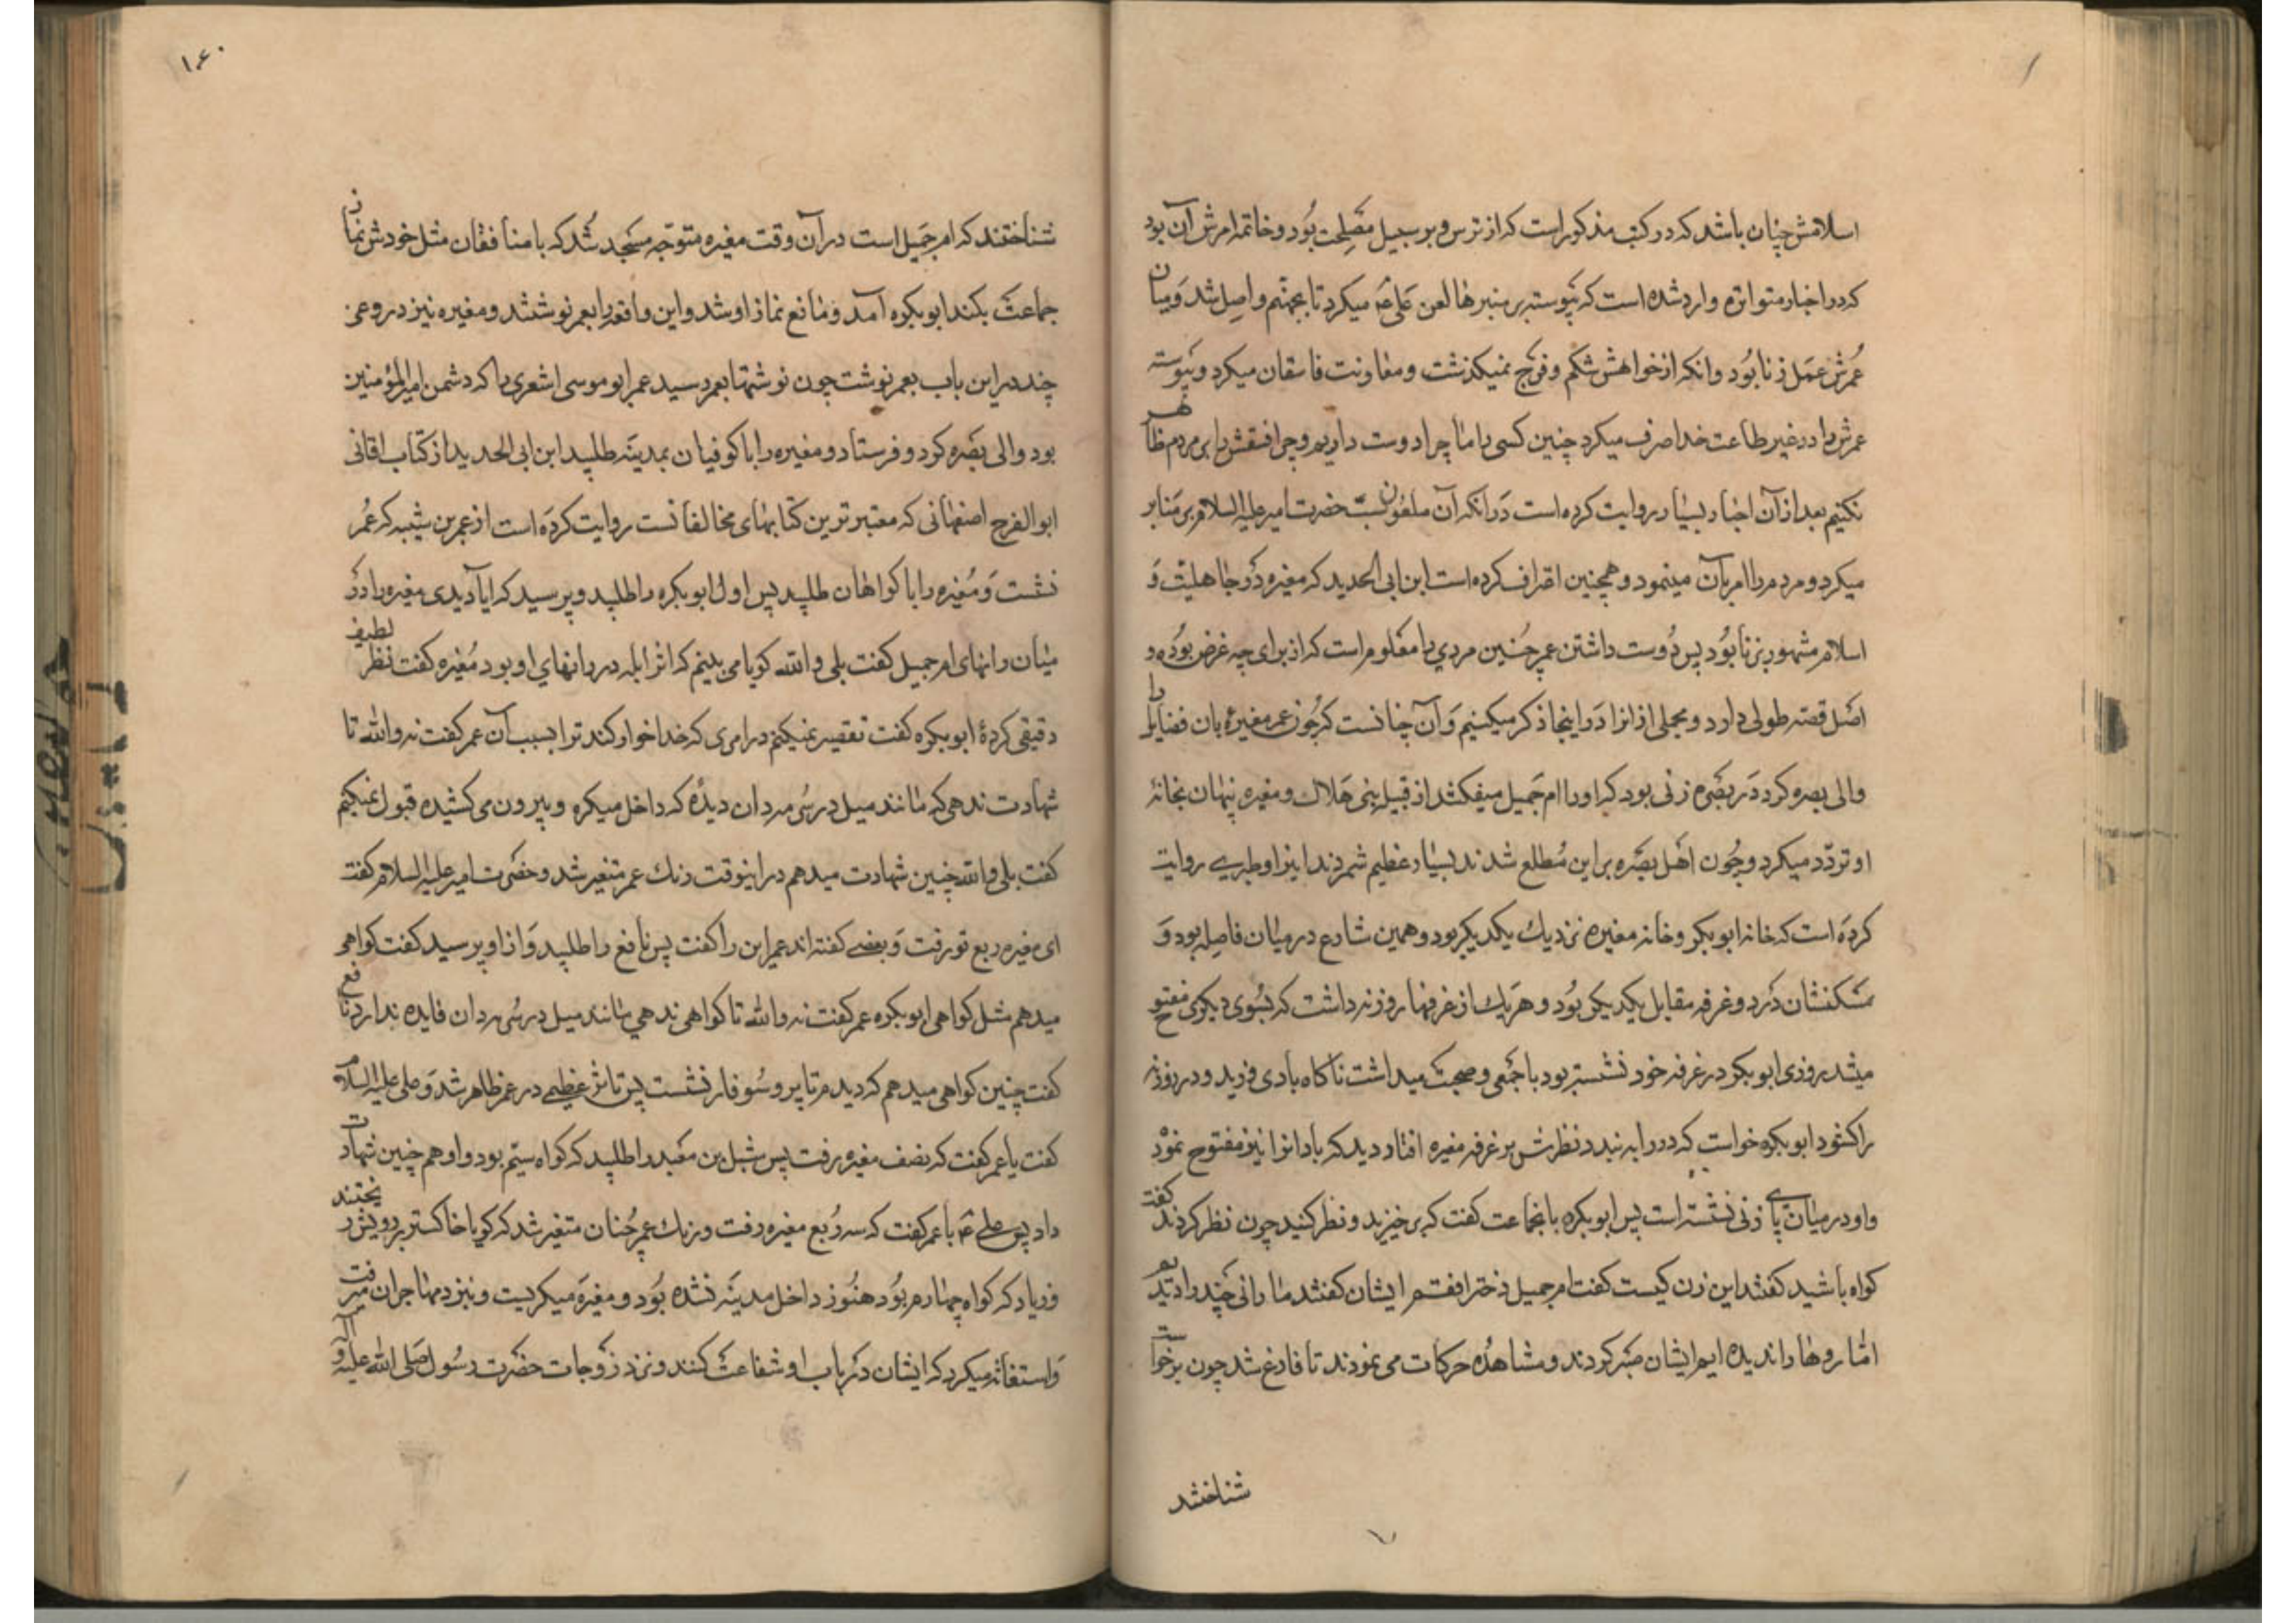 اسلامش چنان باشد که در کتب مذکور است که از ترس و بر سبیل مصلحت بود و خاتمه امرش آن بود
که در اخبار متواتره وارد شده است که پیوسته بر منبرها لعن علی ع میکرد تا بجهنم واصل شد و میان
عمرش عمل زنا بود و انکه از خواهش شکم و فرج نمیکذشت و معاونت فاسقان میکرد و پیوسته
عمرش را در غیر طاعت خدا صرف میکرد چنین کسی را ما چرا دوست داریم و چرا فسقش را بر مردم ظاهر
نکنیم بعد از آن اخبار بسیار روایت کرده است در انکه آن ملعون سب حضرت امیر علیه السلام بر منابر
میکرد و مردم را امر بآن مینمود و همچنین اعتراف کرده است ابن ابی الحدید که مغیره در جاهلیت و
اسلام مشهور بزنا بود پس دوست داشتن عمر چنین مردی را معلوم است که از برای چه غرض بوده و
اصل قصه طولی دارد و مجملی از انرا در اینجا ذکر میکنیم و آن چنانست که چون عمر مغیرهٔ بان فضایل را
والی بصره کرد در بصره زنی بود که او را ام جمیل میکفتند از قبیله بنی هلاک و مغیره پنهان بخانهٔ
او تردد میکرد و چون اهل بصره بر این مطلع شدند بسیار عظیم شمردند اینرا و طبری روایت
کرده است که خانه ابو بکر و خانه مغیره نزدیك یکدیکر بود و همین شارع در میان فاصله بود و
مسکنشان در دو غرفه مقابل یکدیکر بود و هریك از غرفها روزنه داشت که بسوی دیکری مفتوح
میشد روزی ابو بکر در غرفه خود نشسته بود با جمعی و صحبت میداشت ناکاه بادی وزید و در روزنه
را کشود ابو بکره خواست که در را به بندد نظرش بر غرفه مغیره افتاد دید که باد انرا نیز مفتوح نموده
و او در میان پای زنی نشسته است پس ابو بکره بانجماعت کفت که بر خیزید و نظر کنید چون نظر کردند کفت
کواه باشید کفتند این زن کیست کفت ام جمیل دختر افقم ایشان کفتند ما رانی چند را دیدیم
اما روها را ندیده ایم ایشان صبر کردند و مشاهده حرکات می نمودند تا فارغ شد چون برخواست
شناختند
۱۴۰
شناختند که ام جمیل است در آن وقت مغیره متوجه مسجد شد که با منافقان مثل خودش نماز
جماعت بکند ابو بکره آمد و مانع نماز او شد و این واقعه را بعمر نوشتند و مغیره نیز دروغی
چند در این باب بعمر نوشت چون نوشتها بعمر رسید عمر ابو موسی اشعری را که دشمن امیر المؤمنین
بود والی بصره کرد و فرستاد و مغیره را با کوفیان بمدینه طلبید ابن ابی الحدید از کتاب اقانی
ابو الفرج اصفهانی که معتبر ترین کتابهای مخالفانست روایت کرده است از عمر بن شیبه که عمر
نشست و مغیره را با کواهان طلبید پس اول ابو بکره را طلبید و پرسید که ایا دیدی مغیره را در
میان رانهای ام جمیل کفت بلی والله کویا می بینم که اثر ابله در رانهای او بود مغیره کفت نظر لطیف
دقیقی کردهٔ ابو بکره کفت تقصیر نمیکنم در امری که خدا خوار کند ترا بسبب آن عمر کفت نه والله تا
شهادت ندهی که مانند میل در سرمه دان دیدهٔ که داخل میکرد و بیرون می کشیده قبول نمیکنم
کفت بلی والله چنین شهادت میدهم در اینوقت رنك عمر متغیر شد و حضرت امیر علیه السلام کفت
ای مغیره ربع تو رفت و بعضی کفته اند عمر این را کفت پس نافع را طلبید و از او پرسید کفت کواهی
میدهم مثل کواهی ابو بکره عمر کفت نه والله تا کواهی ندهی مانند میل در سرمه دان فایده ندارد نافع
کفت چنین کواهی میدهم که دیدم تا پر و سوفار نشست پس تاثر عظیمی در عمر ظاهر شد و علی علیه السلام
کفت یا عمر کفت که نصف مغیره رفت پس شبل بن معبد را طلبید که کواه سیم بود و او هم چنین شهادت
داد پس علی ع با عمر کفت که سه ربع مغیره رفت و رنك عمر چنان متغیر شد که کویا خاکستر بر رویش ریختند
و زیاد که کواه چهارم بود هنوز داخل مدینه نشده بود و مغیره میکریست و بنزد مهاجران میرفت
و استغاثه میکرد که ایشان در باب او شفاعت کنند و نزد زوجات حضرت رسول صلی الله علیه و آله